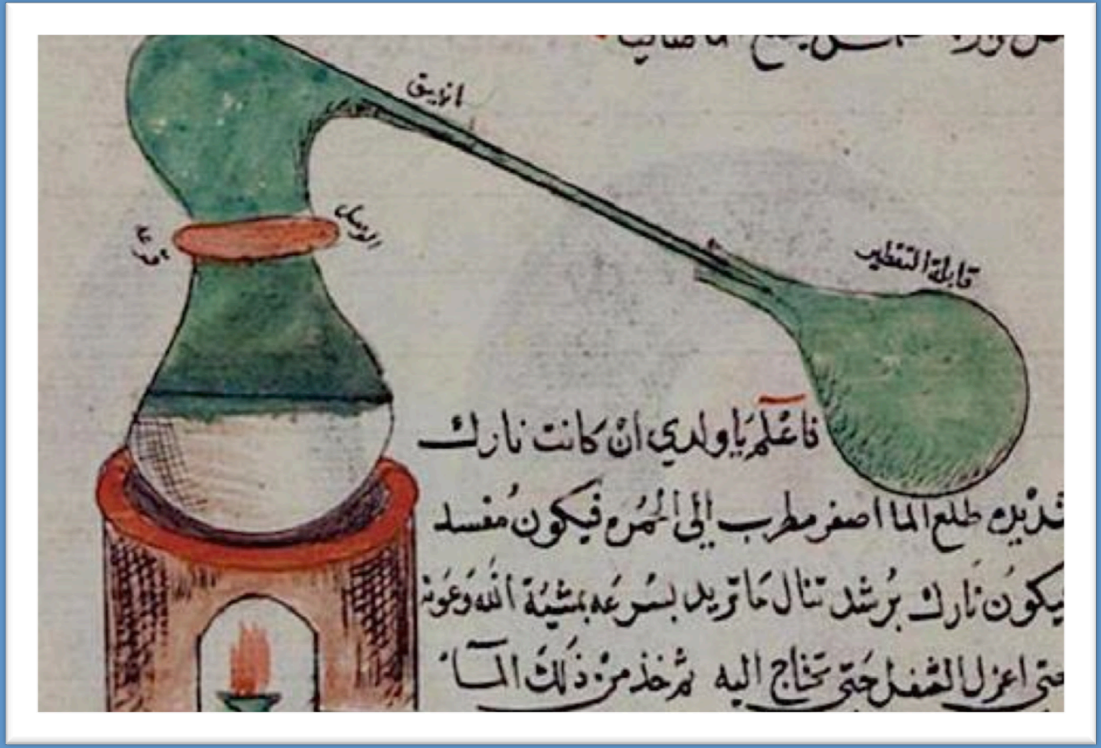 انبيق
قرعه
قابلة التقطير
فاعْلم يَا ولدي انْ كانت نارك
شديده طلع الما اصفر مطرب إلى الحمره فيكون مُفسد
يكونْ نارك برُشد تنال مَا تريد بسرعه بمشية الله وَعَونه
حتى اعزل الثفل حَتى تحتاج اليه ثم خذ منْ ذلك المآء